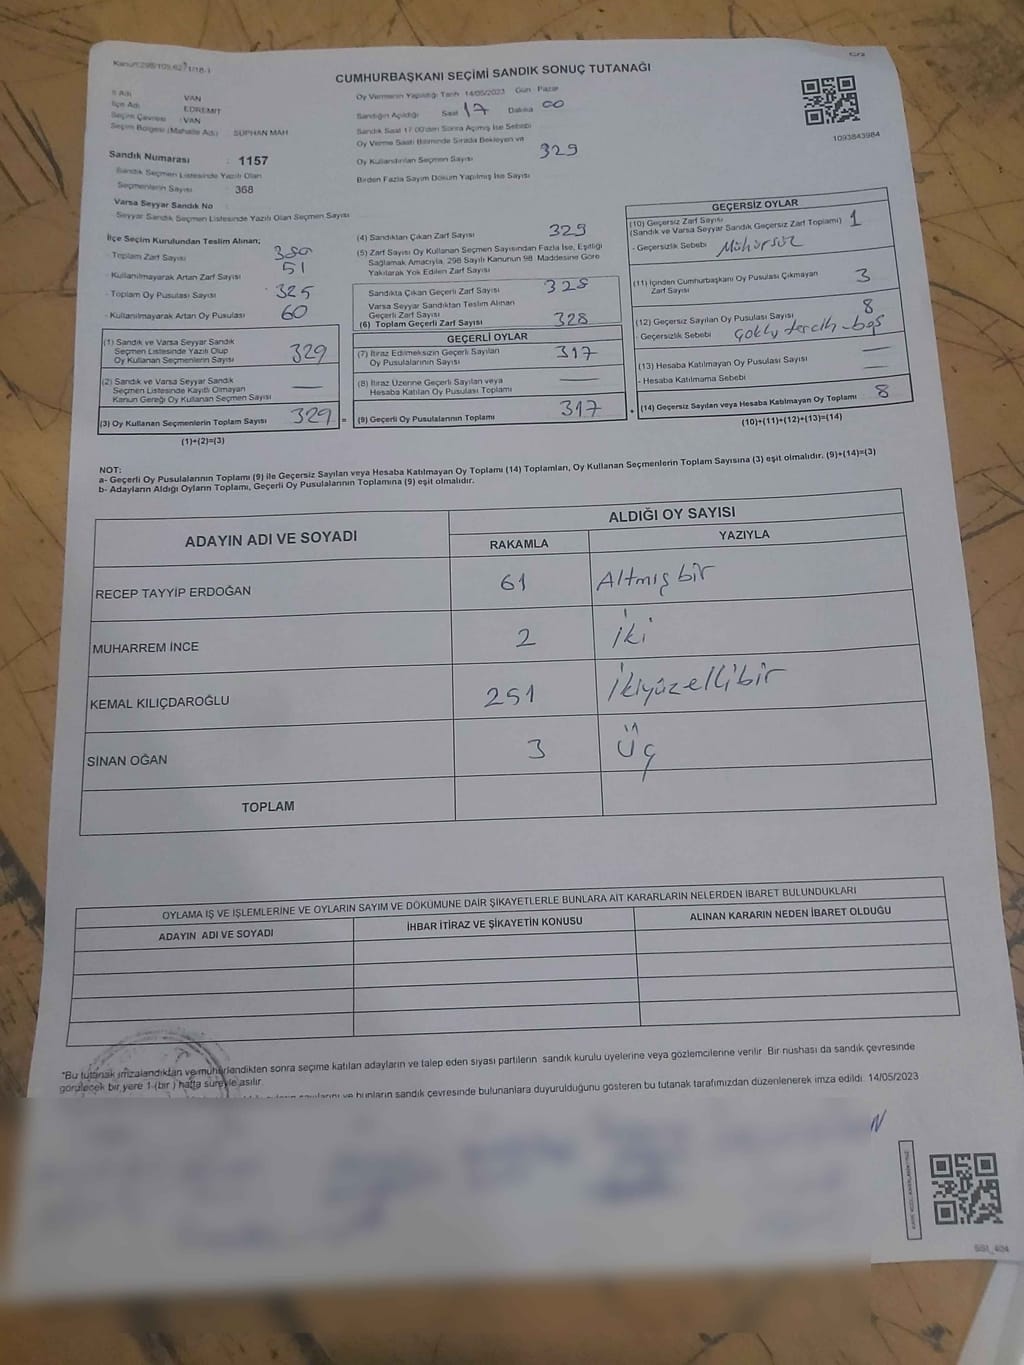 Kanun:298/105,6271/18-1
CUMHURBAŞKANI SEÇİMİ SANDIK SONUÇ TUTANAĞI
1093843984
İl Adı VAN
İlçe Adı EDREMİT
Seçim Çevresi : VAN
Seçim Bölgesi (Mahalle Adı) SÜPHAN MAH
Sandık Numarası : 1157
Sandık Seçmen Listesinde Yazılı Olan
Seçmenlerin Sayısı : 368
Varsa Seyyar Sandık No
Seyyar Sandık Seçmen Listesinde Yazılı Olan Seçmen Sayısı
Oy Vermenin Yapıldığı Tarih 14/05/2023 Gün Pazar
Sandığın Açıldığı Saat 17 Dakika 00
Sandık Saat 17.00'den Sonra Açılmış İse Sebebi
Oy Verme Saati Bitiminde Sırada Bekleyen ve
Oy Kullandırılan Seçmen Sayısı 329
Birden Fazla Sayım Döküm Yapılmış İse Sayısı
İlçe Seçim Kurulundan Teslim Alınan;
- Toplam Zarf Sayısı : 380
- Kullanılmayarak Artan Zarf Sayısı 51
- Toplam Oy Pusulası Sayısı : 325
- Kullanılmayarak Artan Oy Pusulası 60
(1) Sandık ve Varsa Seyyar Sandık
Seçmen Listesinde Yazılı Olup
Oy Kullanan Seçmenlerin Sayısı 329
(2) Sandık ve Varsa Seyyar Sandık
Seçmen Listesinde Kayıtlı Olmayan
Kanun Gereği Oy Kullanan Seçmen Sayısı —
(3) Oy Kullanan Seçmenlerin Toplam Sayısı 329 =
(1)+(2)=(3)
(4) Sandıktan Çıkan Zarf Sayısı 329
(5) Zarf Sayısı Oy Kullanan Seçmen Sayısından Fazla İse, Eşitliği
Sağlamak Amacıyla, 298 Sayılı Kanunun 98. Maddesine Göre
Yakılarak Yok Edilen Zarf Sayısı
Sandıkta Çıkan Geçerli Zarf Sayısı 328
Varsa Seyyar Sandıktan Teslim Alınan
Geçerli Zarf Sayısı
(6) Toplam Geçerli Zarf Sayısı 328
GEÇERLİ OYLAR
(7) İtiraz Edilmeksizin Geçerli Sayılan
Oy Pusulalarının Sayısı 317
(8) İtiraz Üzerine Geçerli Sayılan veya
Hesaba Katılan Oy Pusulası Toplamı —
(9) Geçerli Oy Pusulalarının Toplamı 317 +
GEÇERSİZ OYLAR
(10) Geçersiz Zarf Sayısı
(Sandık ve Varsa Seyyar Sandık Geçersiz Zarf Toplamı) 1
- Geçersizlik Sebebi Mühürsüz
(11) İçinden Cumhurbaşkanı Oy Pusulası Çıkmayan
Zarf Sayısı 3
(12) Geçersiz Sayılan Oy Pusulası Sayısı 8
- Geçersizlik Sebebi Çoklu tercih-boş
(13) Hesaba Katılmayan Oy Pusulası Sayısı —
- Hesaba Katılmama Sebebi —
(14) Geçersiz Sayılan veya Hesaba Katılmayan Oy Toplamı 8
(10)+(11)+(12)+(13)=(14)
NOT:
a- Geçerli Oy Pusulalarının Toplamı (9) ile Geçersiz Sayılan veya Hesaba Katılmayan Oy Toplamı (14) Toplamları, Oy Kullanan Seçmenlerin Toplam Sayısına (3) eşit olmalıdır. (9)+(14)=(3)
b- Adayların Aldığı Oyların Toplamı, Geçerli Oy Pusulalarının Toplamına (9) eşit olmalıdır.
ADAYIN ADI VE SOYADI
ALDIĞI OY SAYISI
RAKAMLA YAZIYLA
RECEP TAYYİP ERDOĞAN 61 Altmışbir
MUHARREM İNCE 2 İki
KEMAL KILIÇDAROĞLU 251 İkiyüzellibir
SİNAN OĞAN 3 Üç
TOPLAM
OYLAMA İŞ VE İŞLEMLERİNE VE OYLARIN SAYIM VE DÖKÜMÜNE DAİR ŞİKAYETLERLE BUNLARA AİT KARARLARIN NELERDEN İBARET BULUNDUKLARI
ADAYIN ADI VE SOYADI İHBAR İTİRAZ VE ŞİKAYETİN KONUSU ALINAN KARARIN NEDEN İBARET OLDUĞU
"Bu tutanak imzalandıktan ve mühürlendikten sonra seçime katılan adayların ve talep eden siyasi partilerin sandık kurulu üyelerine veya gözlemcilerine verilir. Bir nüshası da sandık çevresinde
görülecek bir yere 1 (bir) hafta süreyle asılır.
ve bunların sandık çevresinde bulunanlara duyurulduğunu gösteren bu tutanak tarafımızdan düzenlenerek imza edildi. 14/05/2023